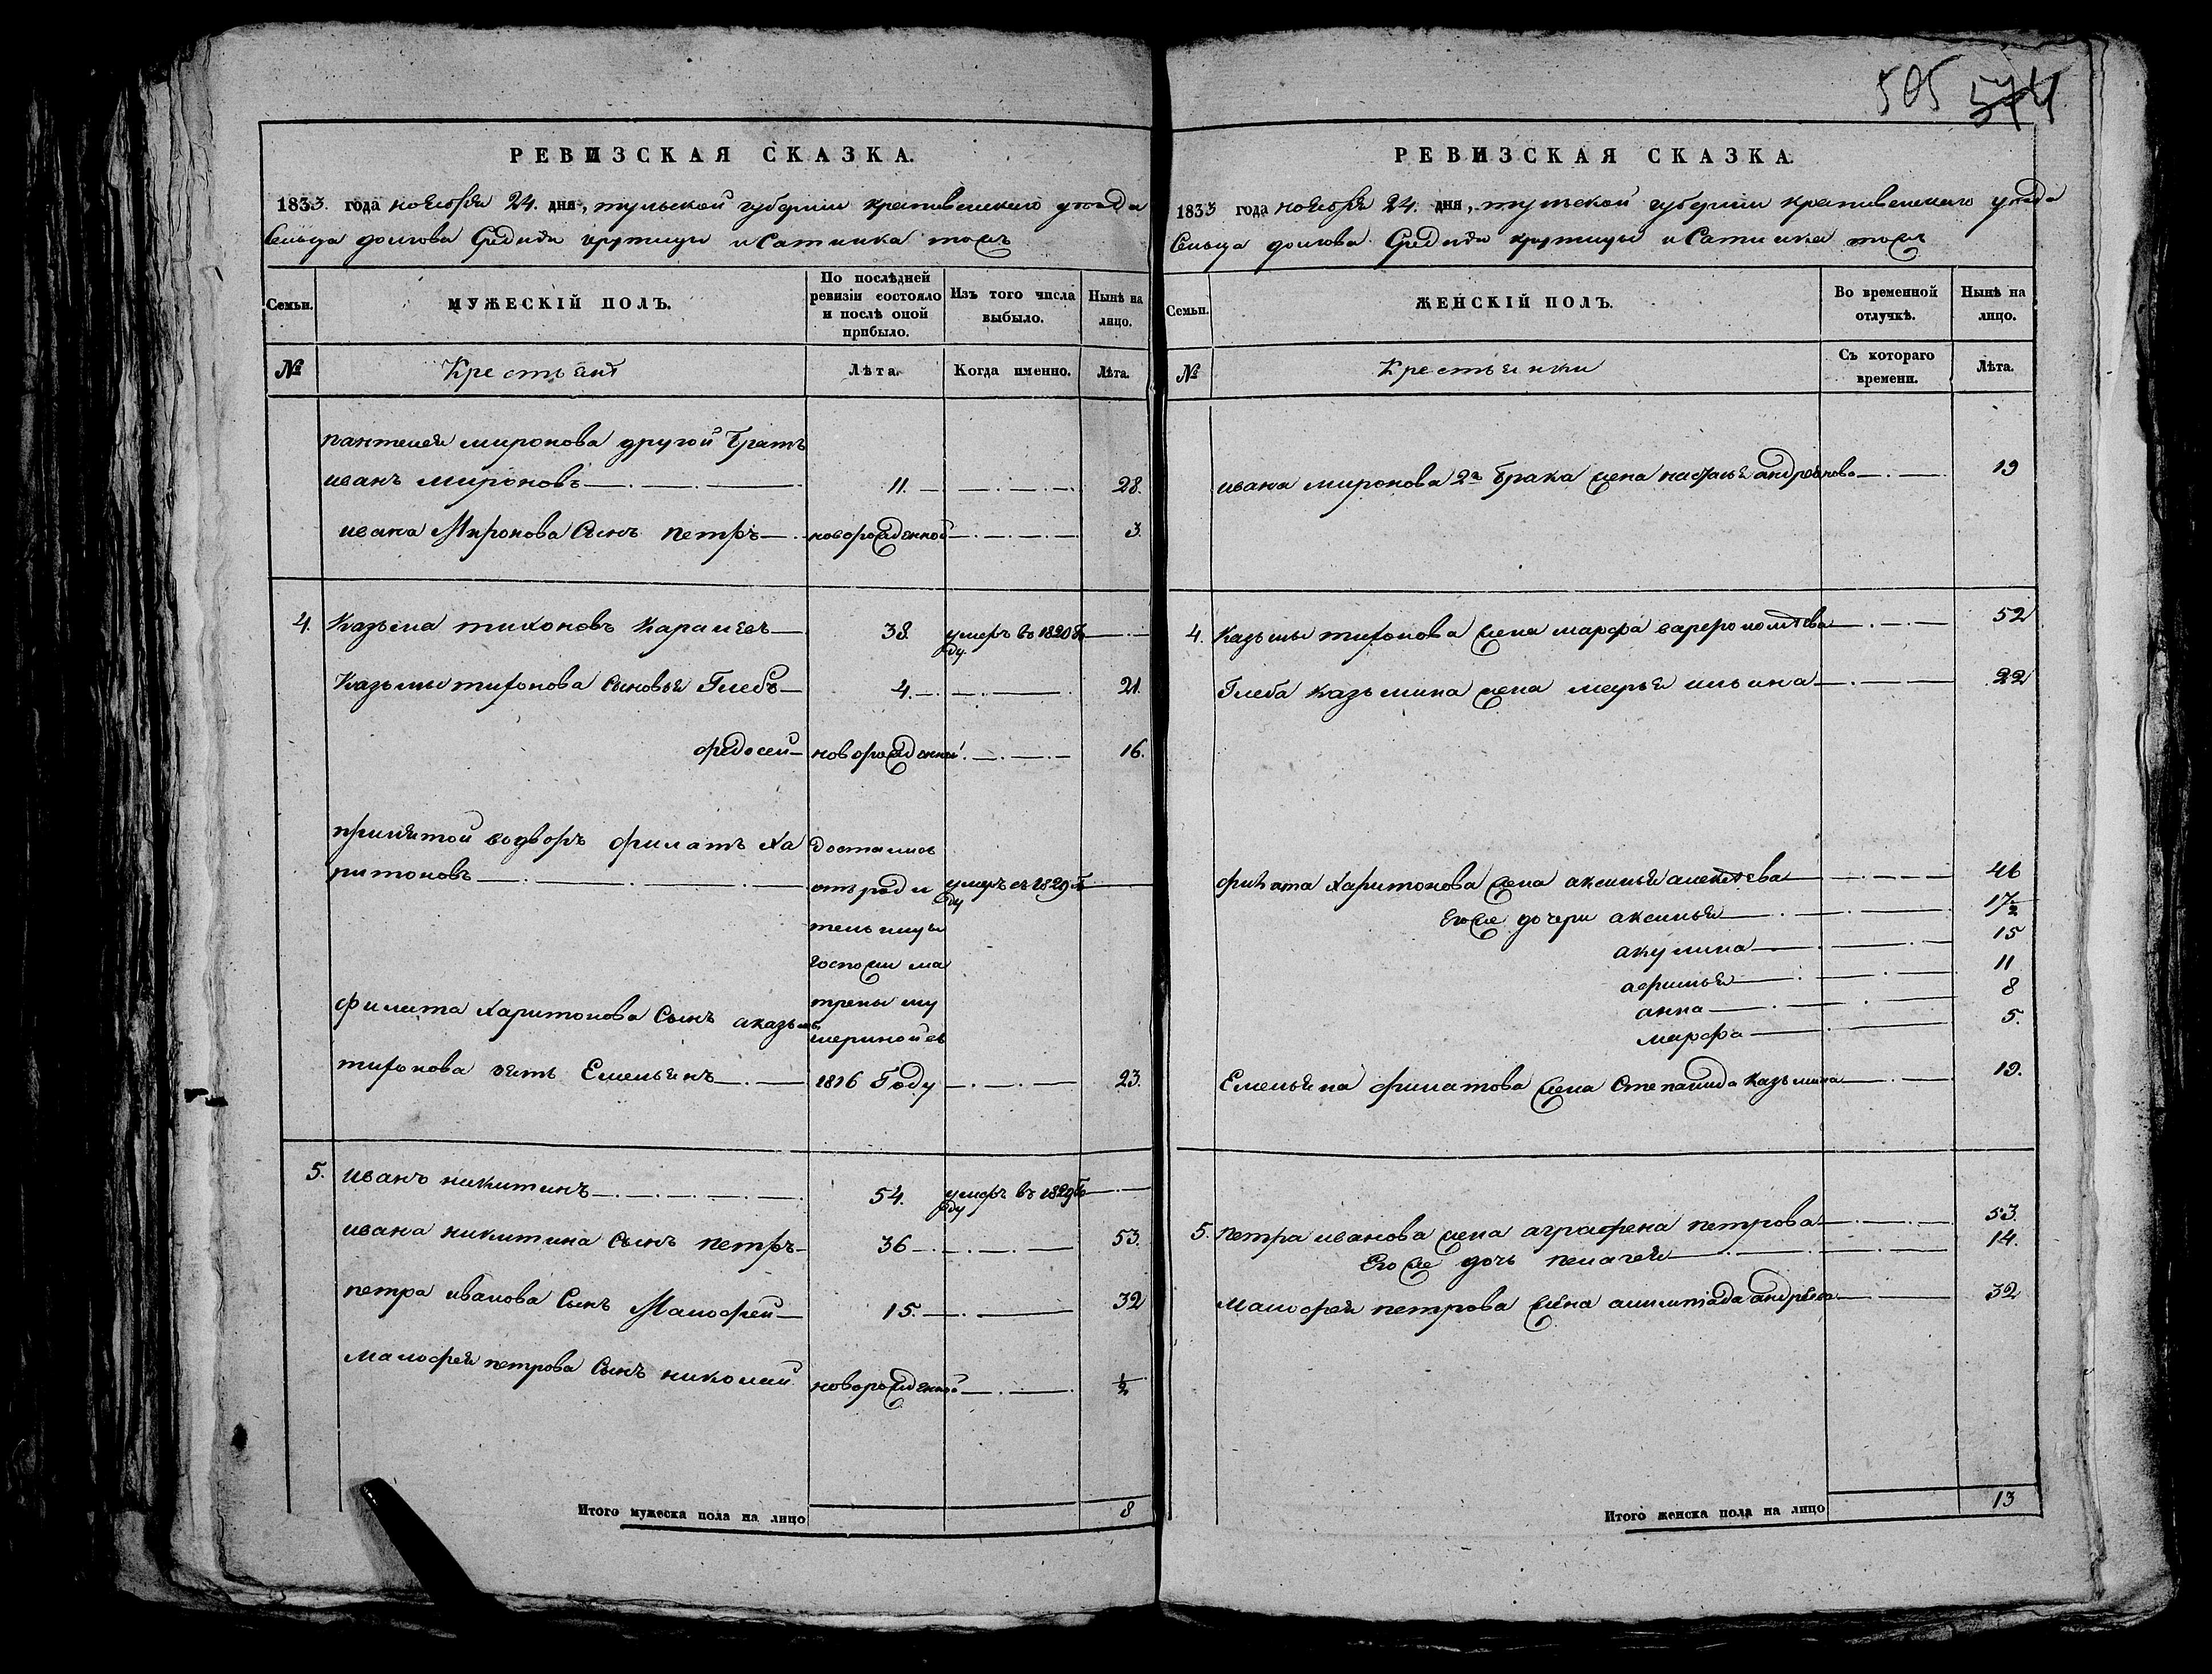 505 574
РЕВИЗСКАЯ СКАЗКА.
1833. года ноября 24. дня, тульской губернии крапивенскаго уезда
Сельца долгова Средиди крутицы и Сатинка тожъ
Семьи.
МУЖЕСКІЙ ПОЛЪ.
По послѣдней ревизіи состояло и послѣ оной прибыло.
Изъ того числа выбыло.
Нынѣ на лицо.
№
Крестьянъ
Лѣта.
Когда именно.
Лѣта.
пантелея миронова другой братъ
иванъ мироновъ 11. 28.
ивана Миронова Сынъ петръ новорожденной 3.
4. Казьма тихоновъ Карамевъ 38. умеръ въ 1820 году
Казьмы тихонова Сыновья Глебъ 4. 21.
федосеи новорожденный 16.
принятой водворъ филатъ Ха
ритоновъ
достались
отъ роди умеръ въ 1829 году
тельницы
Госпожи ма
филата Харитонова Сынъ а казьмы
трены шу
мериной въ
тихонова зять Емельянъ 1816 Году 23.
5. иванъ никитинъ 54. умеръ въ 1829 году
ивана никитина Сынъ петръ 36 53.
петра иванова Сынъ Малофеи 15. 32
малофея петрова Сынъ николаи новорожденной ½
Итого мужеска пола на лицо 8
РЕВИЗСКАЯ СКАЗКА.
1833 года ноября 24. дня, тульской губернии крапивенскаго уезда
Сельца долгова Средиди крутицы и Сатинка тожъ
Семьи.
ЖЕНСКІЙ ПОЛЪ.
Во временной отлучкѣ.
Нынѣ на лицо.
№
Крестьянки
Съ котораго времени.
Лѣта.
ивана миронова 2го брака жена насталья андреянова 19
4. Казьмы тихонова жена марфа варфоломѣева 52
Глеба казьмина жена марья ильина 22
филата Харитонова жена аксинья алексѣева 46
Егоже дочери аксинья 17½
акулина 15
афимья 11
анна 8
марфа 5.
Емельяна филатова жена Степанида Казьмина 19.
5. петра иванова жена аграфена петрова 53.
Егоже дочь пелагея 14.
малофея петрова жена алимпіада андрѣева 32
Итого женска пола на лицо 13